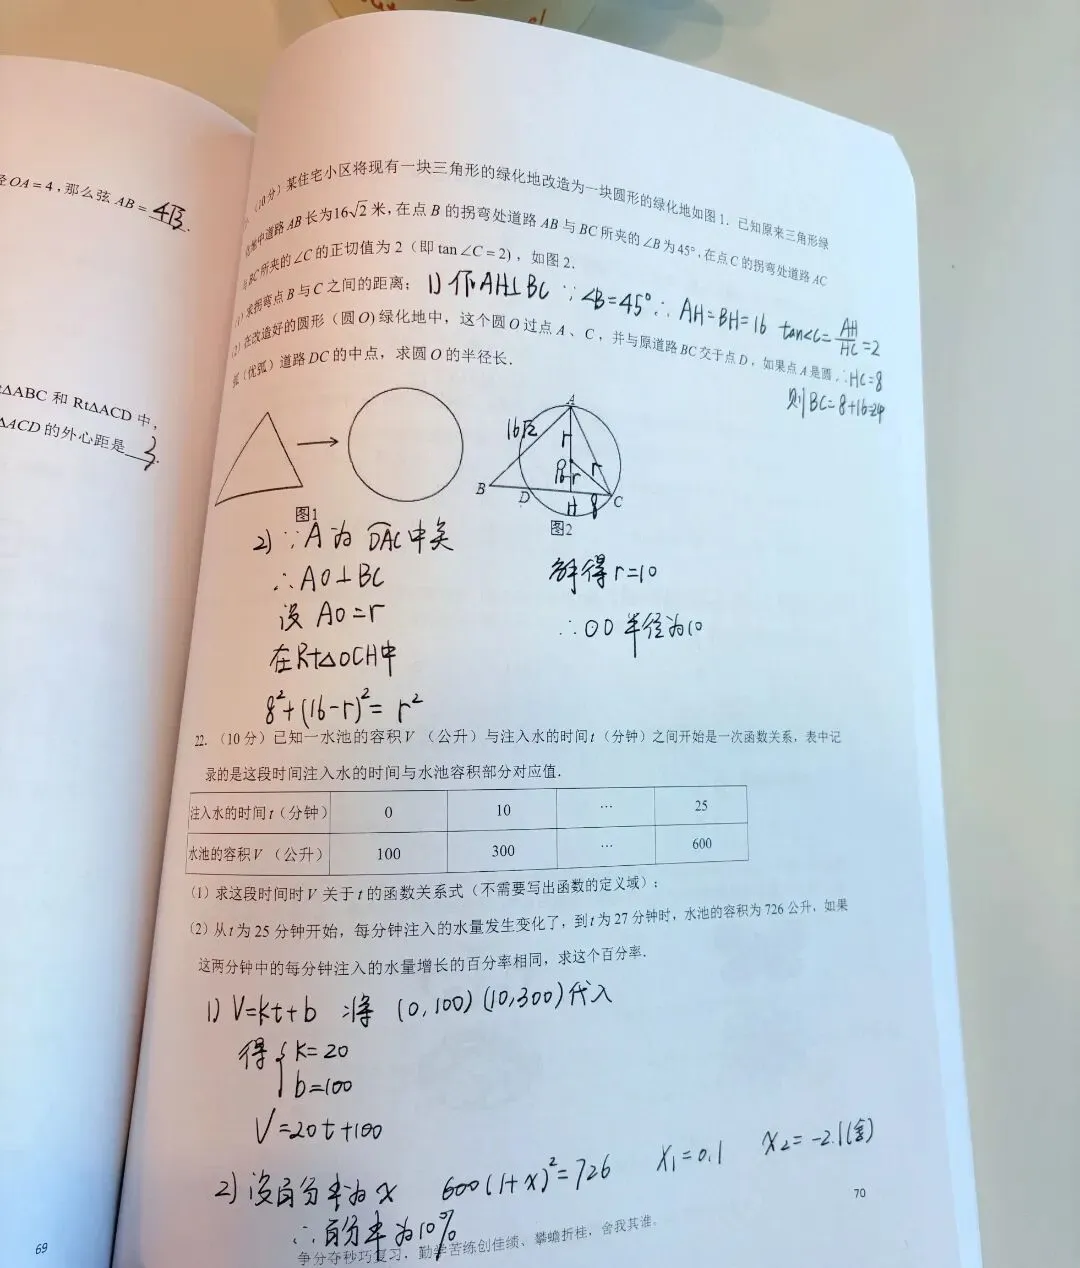 径OA=4,那么弦AB=4√3.
RtΔABC 和 RtΔACD 中,
ΔACD 的外心距是 3.
69
(10分)某住宅小区将现有一块三角形的绿化地改造为一块圆形的绿化地如图1. 已知原来三角形绿
化地中道路AB长为16√2米,在点B的拐弯处道路AB与BC所夹的∠B为45°,在点C的拐弯处道路AC
与BC所夹的∠C的正切值为2(即tan∠C=2),如图2.
(1)求拐弯点B与C之间的距离;
1) 作AH⊥BC ∵∠B=45° ∴AH=BH=16 tan∠C=AH/HC=2
∴HC=8
则BC=8+16=24
(2)在改造好的圆形(圆O)绿化地中,这个圆O过点A、C,并与原道路BC交于点D,如果点A是圆
弧(优弧)道路DC的中点,求圆O的半径长.
A
16√2
r
O
r
16-r
B
D
H
8
C
图1
图2
2) ∵A为DAC中点
∴AO⊥BC
设AO=r
在Rt△OCH中
8²+(16-r)²=r²
解得r=10
∴⊙O半径为10
22.(10分)已知一水池的容积V(公升)与注入水的时间t(分钟)之间开始是一次函数关系,表中记
录的是这段时间注入水的时间与水池容积部分对应值.
注入水的时间t(分钟) 0 10 … 25
水池的容积V(公升) 100 300 … 600
(1)求这段时间时V关于t的函数关系式(不需要写出函数的定义域);
(2)从t为25分钟开始,每分钟注入的水量发生变化了,到t为27分钟时,水池的容积为726公升,如果
这两分钟中的每分钟注入的水量增长的百分率相同,求这个百分率.
1) V=kt+b 将 (0,100)(10,300)代入
得{k=20
b=100
V=20t+100
2) 设百分率为x 600(1+x)²=726 x₁=0.1 x₂=-2.1(舍)
∴百分率为10%
70
争分夺秒巧复习,勤学苦练创佳绩、攀蟾折桂,舍我其谁。